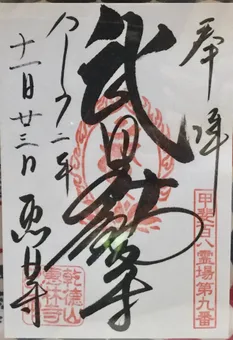 奉拝
甲斐百八霊場第九番
武田不動尊
乾徳山
恵林寺
十一月廿三日
恵林寺